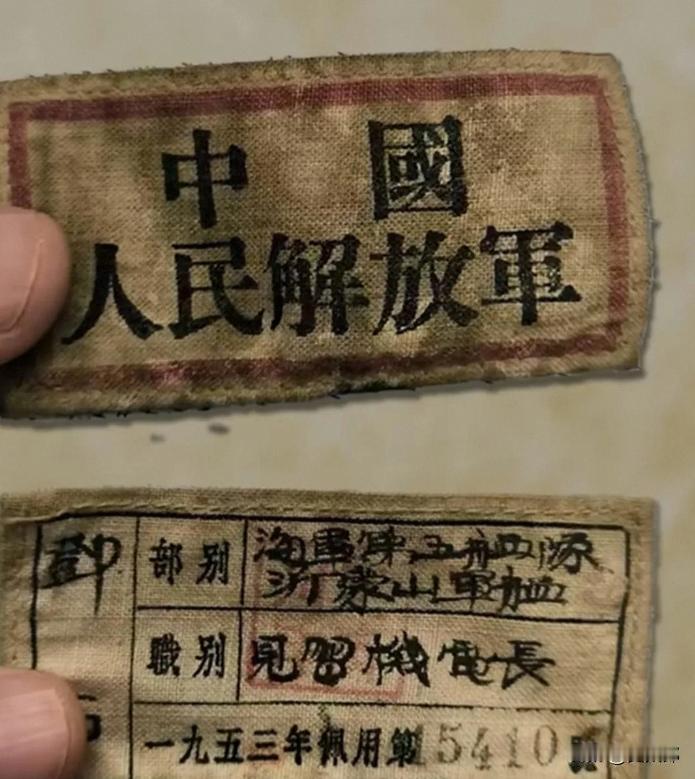 中國
人民解放軍
鄧
部别
海軍第五舰隊
沂蒙山軍舰
職别
見習機電長
一九五三年佩用第15410號